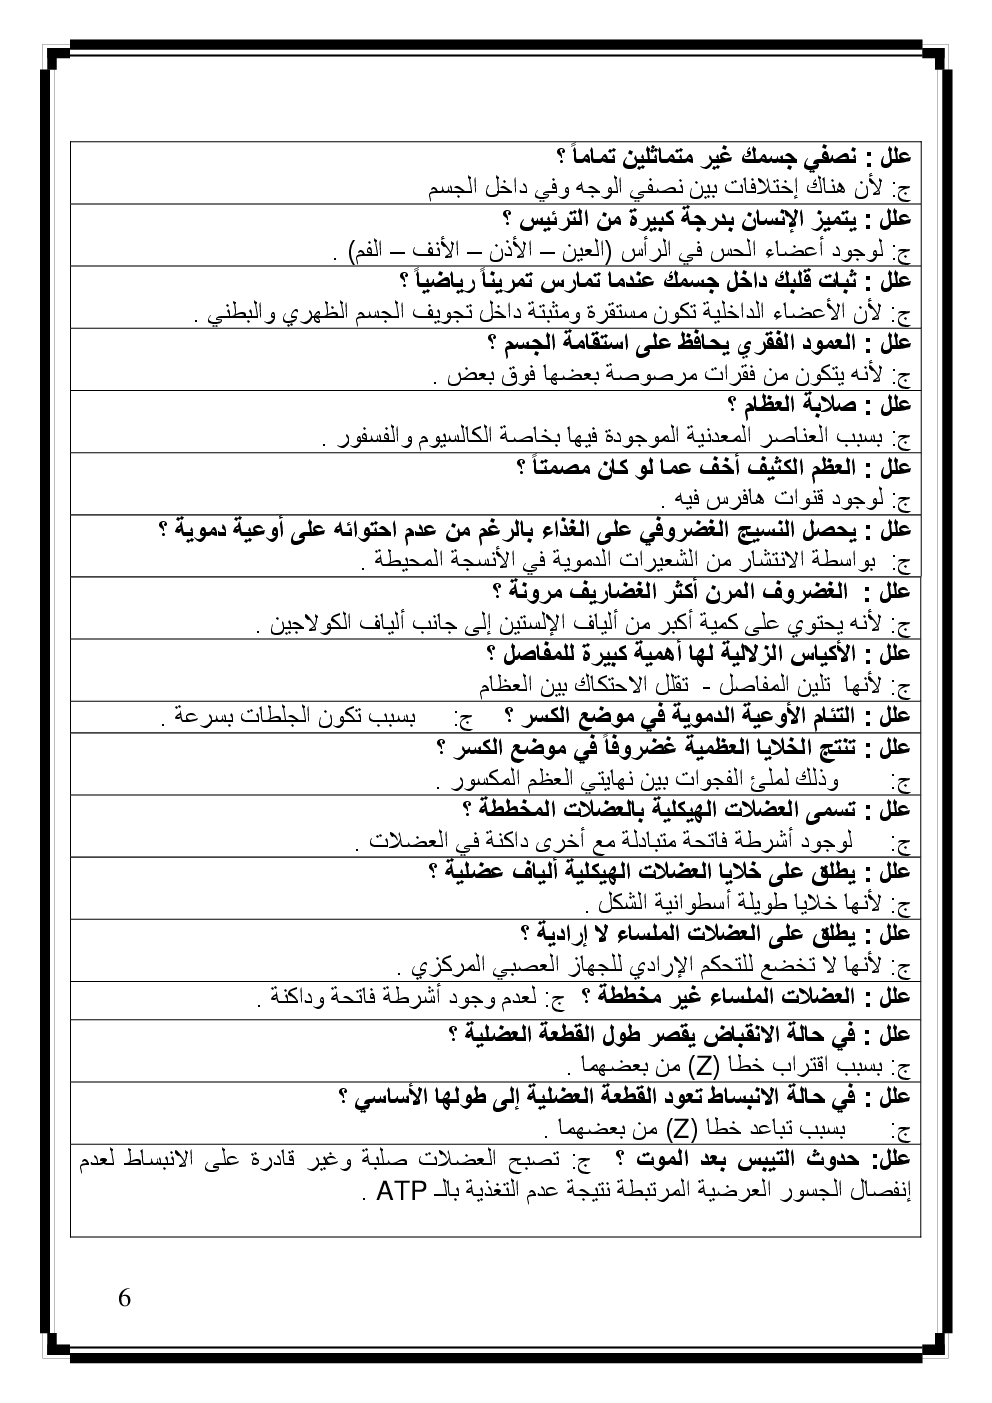 علل : نصفي جسمك غير متماثلين تماماً ؟
ج: لأن هناك إختلافات بين نصفي الوجه وفي داخل الجسم
علل : يتميز الإنسان بدرجة كبيرة من الترئيس ؟
ج: لوجود أعضاء الحس في الرأس (العين – الأذن – الأنف – الفم) .
علل : ثبات قلبك داخل جسمك عندما تمارس تمريناً رياضياً ؟
ج: لأن الأعضاء الداخلية تكون مستقرة ومثبتة داخل تجويف الجسم الظهري والبطني .
علل : العمود الفقري يحافظ على استقامة الجسم ؟
ج: لأنه يتكون من فقرات مرصوصة بعضها فوق بعض .
علل : صلابة العظام ؟
ج: بسبب العناصر المعدنية الموجودة فيها بخاصة الكالسيوم والفسفور .
علل : العظم الكثيف أخف عما لو كان مصمتاً ؟
ج: لوجود قنوات هافرس فيه .
علل : يحصل النسيج الغضروفي على الغذاء بالرغم من عدم احتوائه على أوعية دموية ؟
ج: بواسطة الانتشار من الشعيرات الدموية في الأنسجة المحيطة .
علل : الغضروف المرن أكثر الغضاريف مرونة ؟
ج: لأنه يحتوي على كمية أكبر من ألياف الإلستين إلى جانب ألياف الكولاجين .
علل : الأكياس الزلالية لها أهمية كبيرة للمفاصل ؟
ج: لأنها تلين المفاصل - تقلل الاحتكاك بين العظام
علل : التئام الأوعية الدموية في موضع الكسر ؟ ج: بسبب تكون الجلطات بسرعة .
علل : تنتج الخلايا العظمية غضروفاً في موضع الكسر ؟
ج: وذلك لملئ الفجوات بين نهايتي العظم المكسور .
علل : تسمى العضلات الهيكلية بالعضلات المخططة ؟
ج: لوجود أشرطة فاتحة متبادلة مع أخرى داكنة في العضلات .
علل : يطلق على خلايا العضلات الهيكلية ألياف عضلية ؟
ج: لأنها خلايا طويلة أسطوانية الشكل .
علل : يطلق على العضلات الملساء لا إرادية ؟
ج: لأنها لا تخضع للتحكم الإرادي للجهاز العصبي المركزي .
علل : العضلات الملساء غير مخططة ؟ ج: لعدم وجود أشرطة فاتحة وداكنة .
علل : في حالة الانقباض يقصر طول القطعة العضلية ؟
ج: بسبب اقتراب خطا (Z) من بعضهما .
علل : في حالة الانبساط تعود القطعة العضلية إلى طولها الأساسي ؟
ج: بسبب تباعد خطا (Z) من بعضهما .
علل: حدوث التيبس بعد الموت ؟ ج: تصبح العضلات صلبة وغير قادرة على الانبساط لعدم
إنفصال الجسور العرضية المرتبطة نتيجة عدم التغذية بالـ ATP .
6